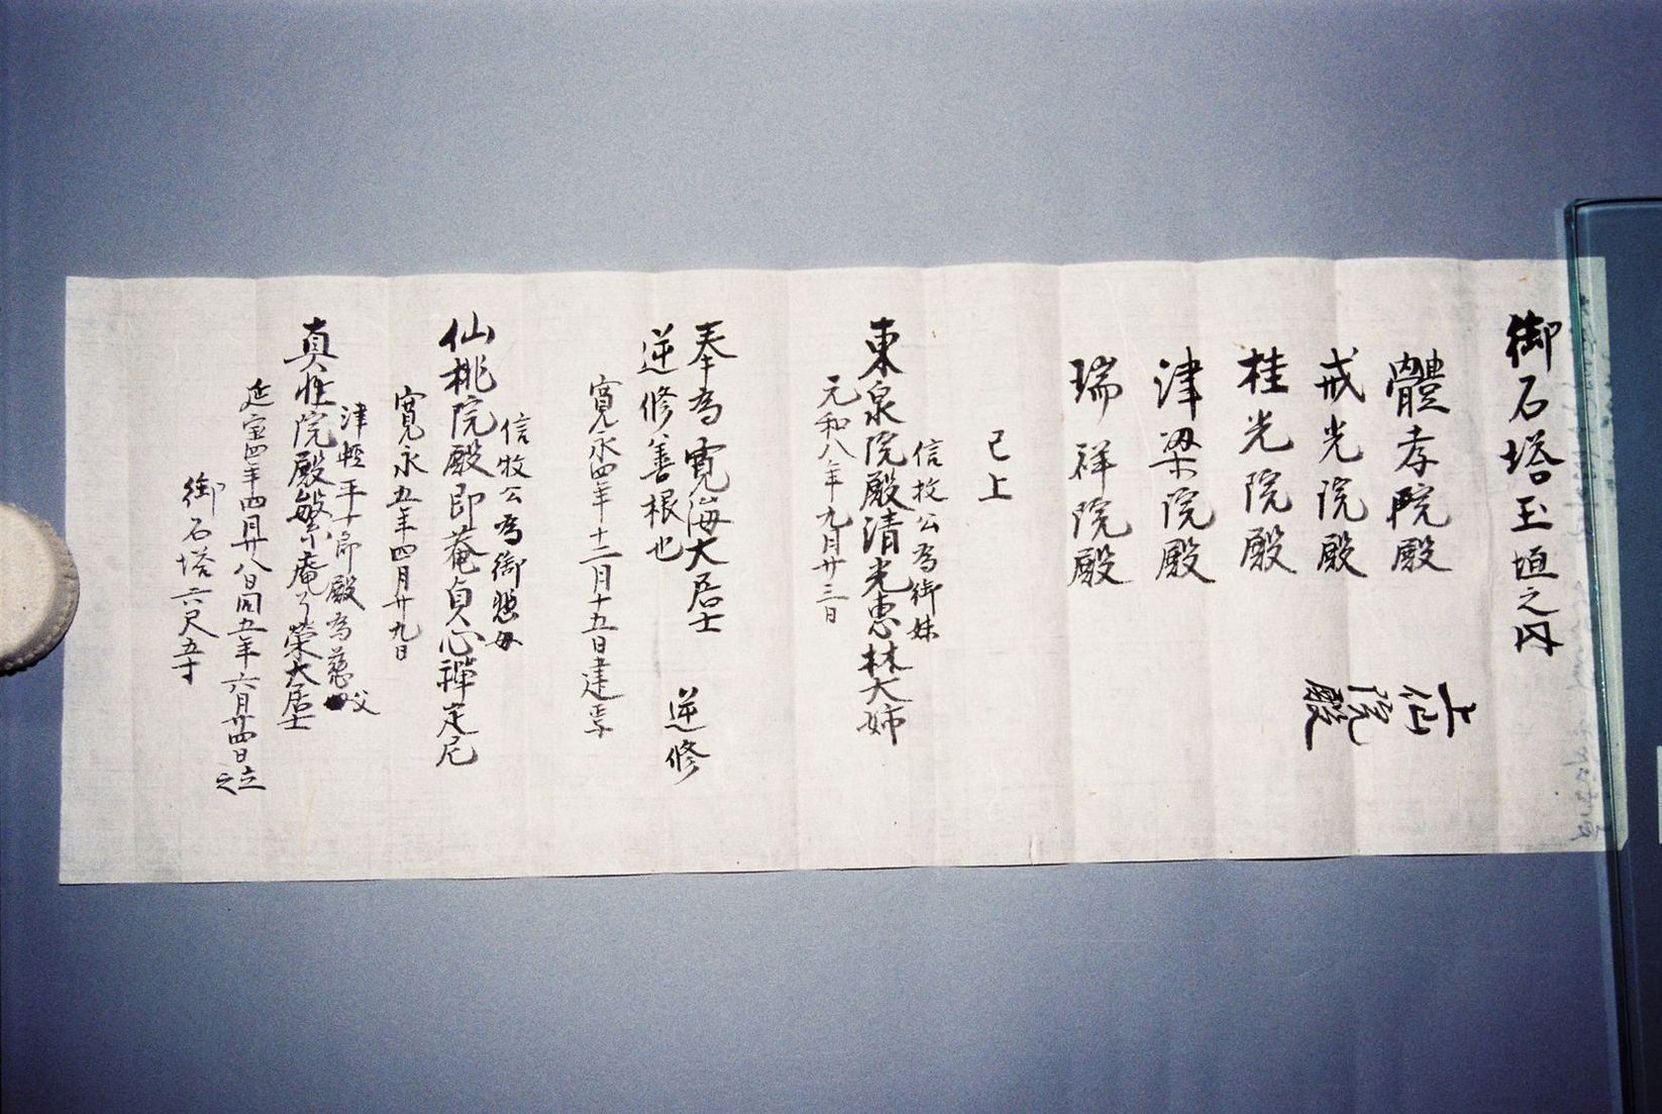 御石塔玉垣之内
體孝院殿
上仙院殿
戒光院殿
桂光院殿
津梁院殿
瑞祥院殿
已上
信枚公為御妹
東泉院殿清光恵林大姉
元和八年九月廿三日
奉為寛海大居士 逆修
逆修善根也
寛永四年十二月十五日建焉
信牧公為御悲母
仙桃院殿即菴貞心禅定尼
寛永五年四月廿九日
津軽平十郎殿為慈父
真性院殿繁庵了榮大居士
延宝四年四月廿八日同五年六月廿四日立之
御石塔六尺五寸